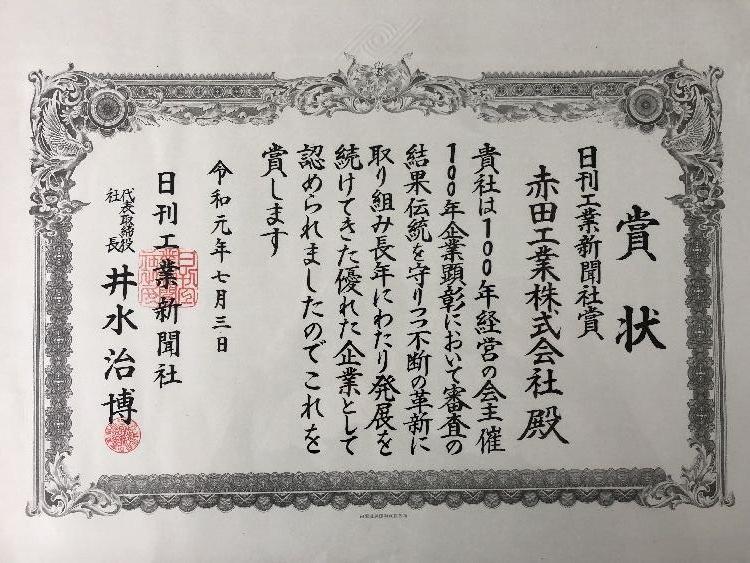 賞状
日刊工業新聞社賞
赤田工業株式会社殿
貴社は100年経営の会主催
100年企業顕彰において審査の
結果伝統を守りつつ不断の革新に
取り組み長年にわたり発展を
続けてきた優れた企業として
認められましたのでこれを
賞します
令和元年七月三日
日刊工業新聞社
代表取締役
社長
井水治博